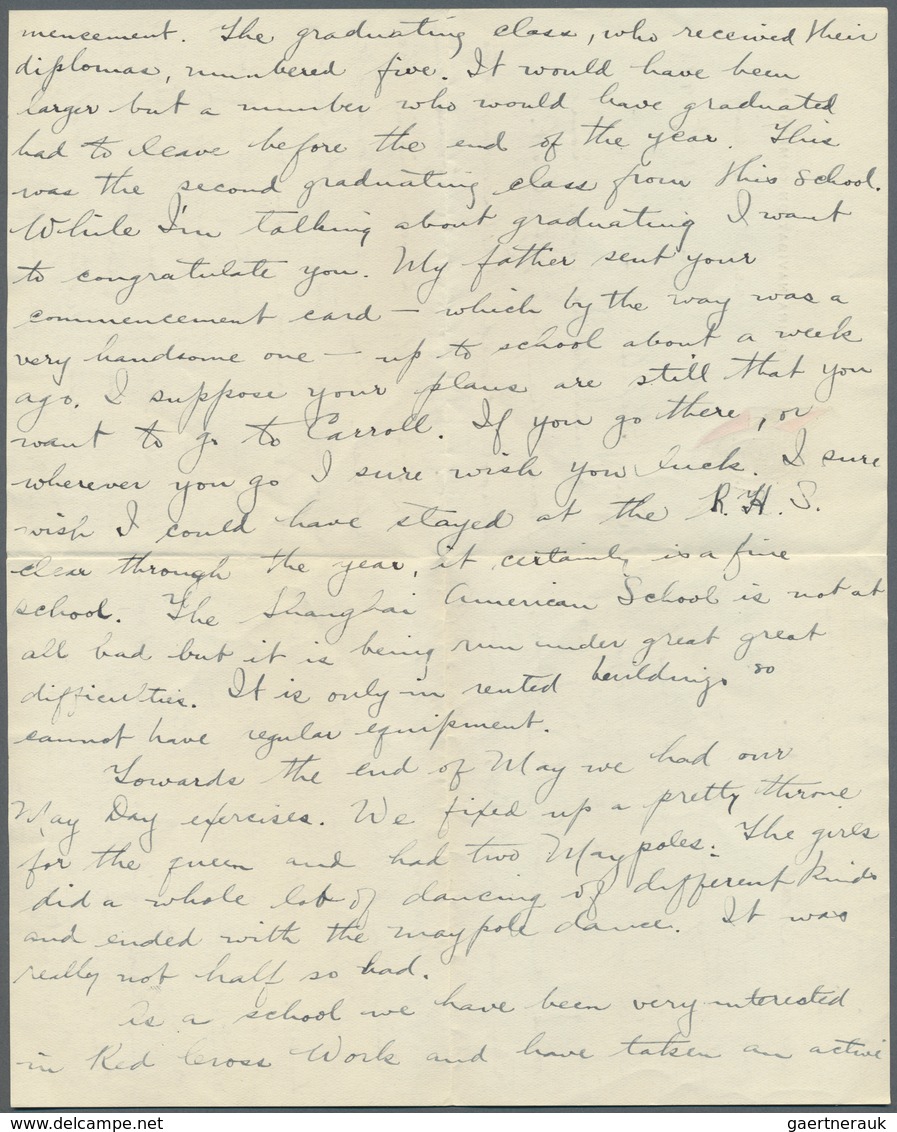 mencement. The graduating class, who received their
diplomas, numbered five. It would have been
larger but a number who would have graduated
had to leave before the end of the year. This
was the second graduating class from this school.
While I'm talking about graduating I want
to congratulate you. My father sent your
commencement card — which by the way was a
very handsome one — up to school about a week
ago. I suppose your plans are still that you
want to go to Carroll. If you go there, or
wherever you go I sure wish you luck. I sure
wish I could have stayed at the R.H.S.
clear through the year, it certainly is a fine
school. The Shanghai American School is not at
all bad but it is being run under great great
difficulties. It is only in rented buildings so
cannot have regular equipment.
Towards the end of May we had our
May Day exercises. We fixed up a pretty throne
for the queen and had two May poles. The girls
did a whole lot of dancing of different kinds
and ended with the maypole dance. It was
really not half so bad.
As a school we have been very interested
in Red Cross Work and have taken an active
Posted with permission of the owner
gaertnerauk